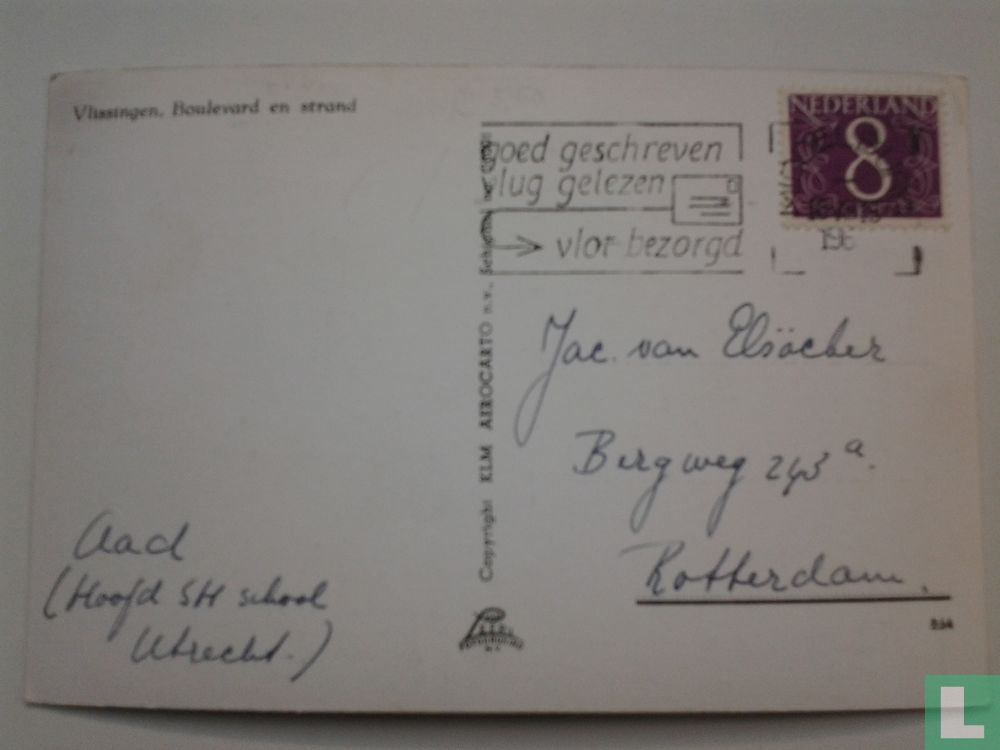 Vlissingen, Boulevard en strand
goed geschreven
vlug gelezen
vlot bezorgd
NEDERLAND
8
196
Copyright KLM AEROCARTO n.v., Schiphol
Jac. van Elsäcker
Bergweg 243a.
Rotterdam.
Aad
(Hoofd SH school
Utrecht.)
L